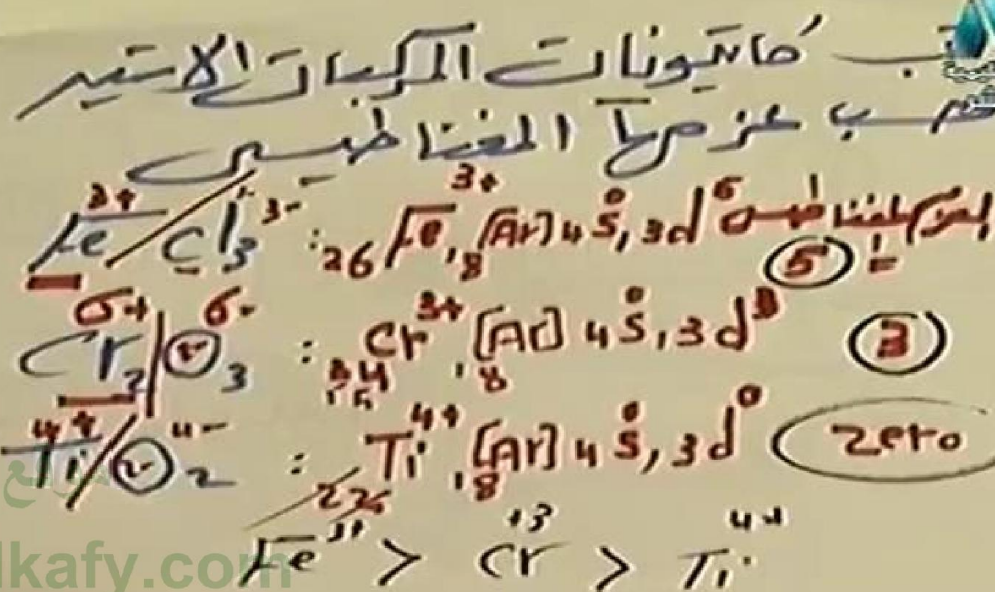 رتب كاتيونات المركبات الآتية
حسب عزمها المغناطيسي
Fe³⁺/Cl₃³⁻ : ₂₆Fe³⁺, ₁₈[Ar] 4s⁰, 3d⁵ العزم المغناطيسى = 5
Cr₂⁶⁺/O₃⁶⁻ : ₂₄Cr³⁺, ₁₈[Ar] 4s⁰, 3d³ 3
Ti⁴⁺/O₂⁴⁻ : ₂₂Ti⁴⁺, ₁₈[Ar] 4s⁰, 3d⁰ zero
Fe³⁺ > Cr⁺³ > Ti⁴⁺
lkafy.com